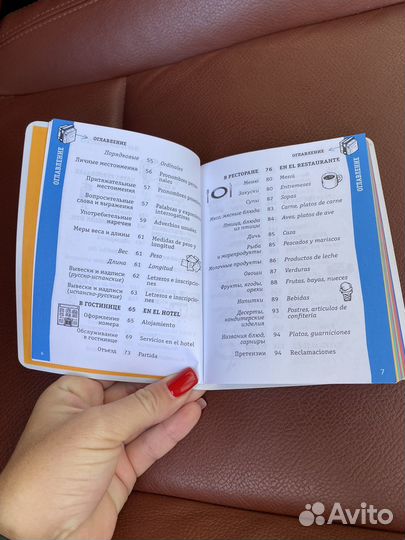 ОГЛАВЛЕНИЕ
ОГЛАВЛЕНИЕ
Порядковые 55 Ordinales
Личные местоимения 56 Pronombres
Притяжательные 57 Pronombres
местоимения
Вопросительные 57 Palabras y expresiones
слова и выражения interrogativas
Употребительные 59 Adverbios usuales
наречия
Меры веса и длины 61 Medidas de peso y
longitud
Вес 61 Peso
Длина 61 Longitud
Вывески и надписи 62 Letreros e inscripcio-
(русско-испанские) nes
Вывески и надписи 63 Letreros e inscripcio-
(испанско-русские) nes
В ГОСТИНИЦЕ 65 EN EL HOTEL
Оформление 65 Alojamiento
номера
Обслуживание 69 Servicios en el hotel
в гостинице
Отъезд 73 Partida
6
ОГЛАВЛЕНИЕ
ОГЛАВЛЕНИЕ
В РЕСТОРАНЕ 76 EN EL RESTAURANTE
Меню 80 Menú
Закуски 80 Entremeses
Супы 87 Sopas
Мясо, мясные блюда 83 Carne, platos de carne
Птица, блюда 84 Aves, platos de ave
из птицы
Дичь 85 Caza
Рыба 85 Pescados y mariscos
и морепродукты
Молочные продукты 86 Productos de leche
Овощи 87 Verduras
Фрукты, ягоды, 88 Frutas, bayas, nueces
орехи
Напитки 89 Bebidas
Десерты, 93 Postres, artículos de
кондитерские confitería
изделия
Названия блюд, 94 Platos, guarniciones
гарниры
Претензии 94 Reclamaciones
7
Avito